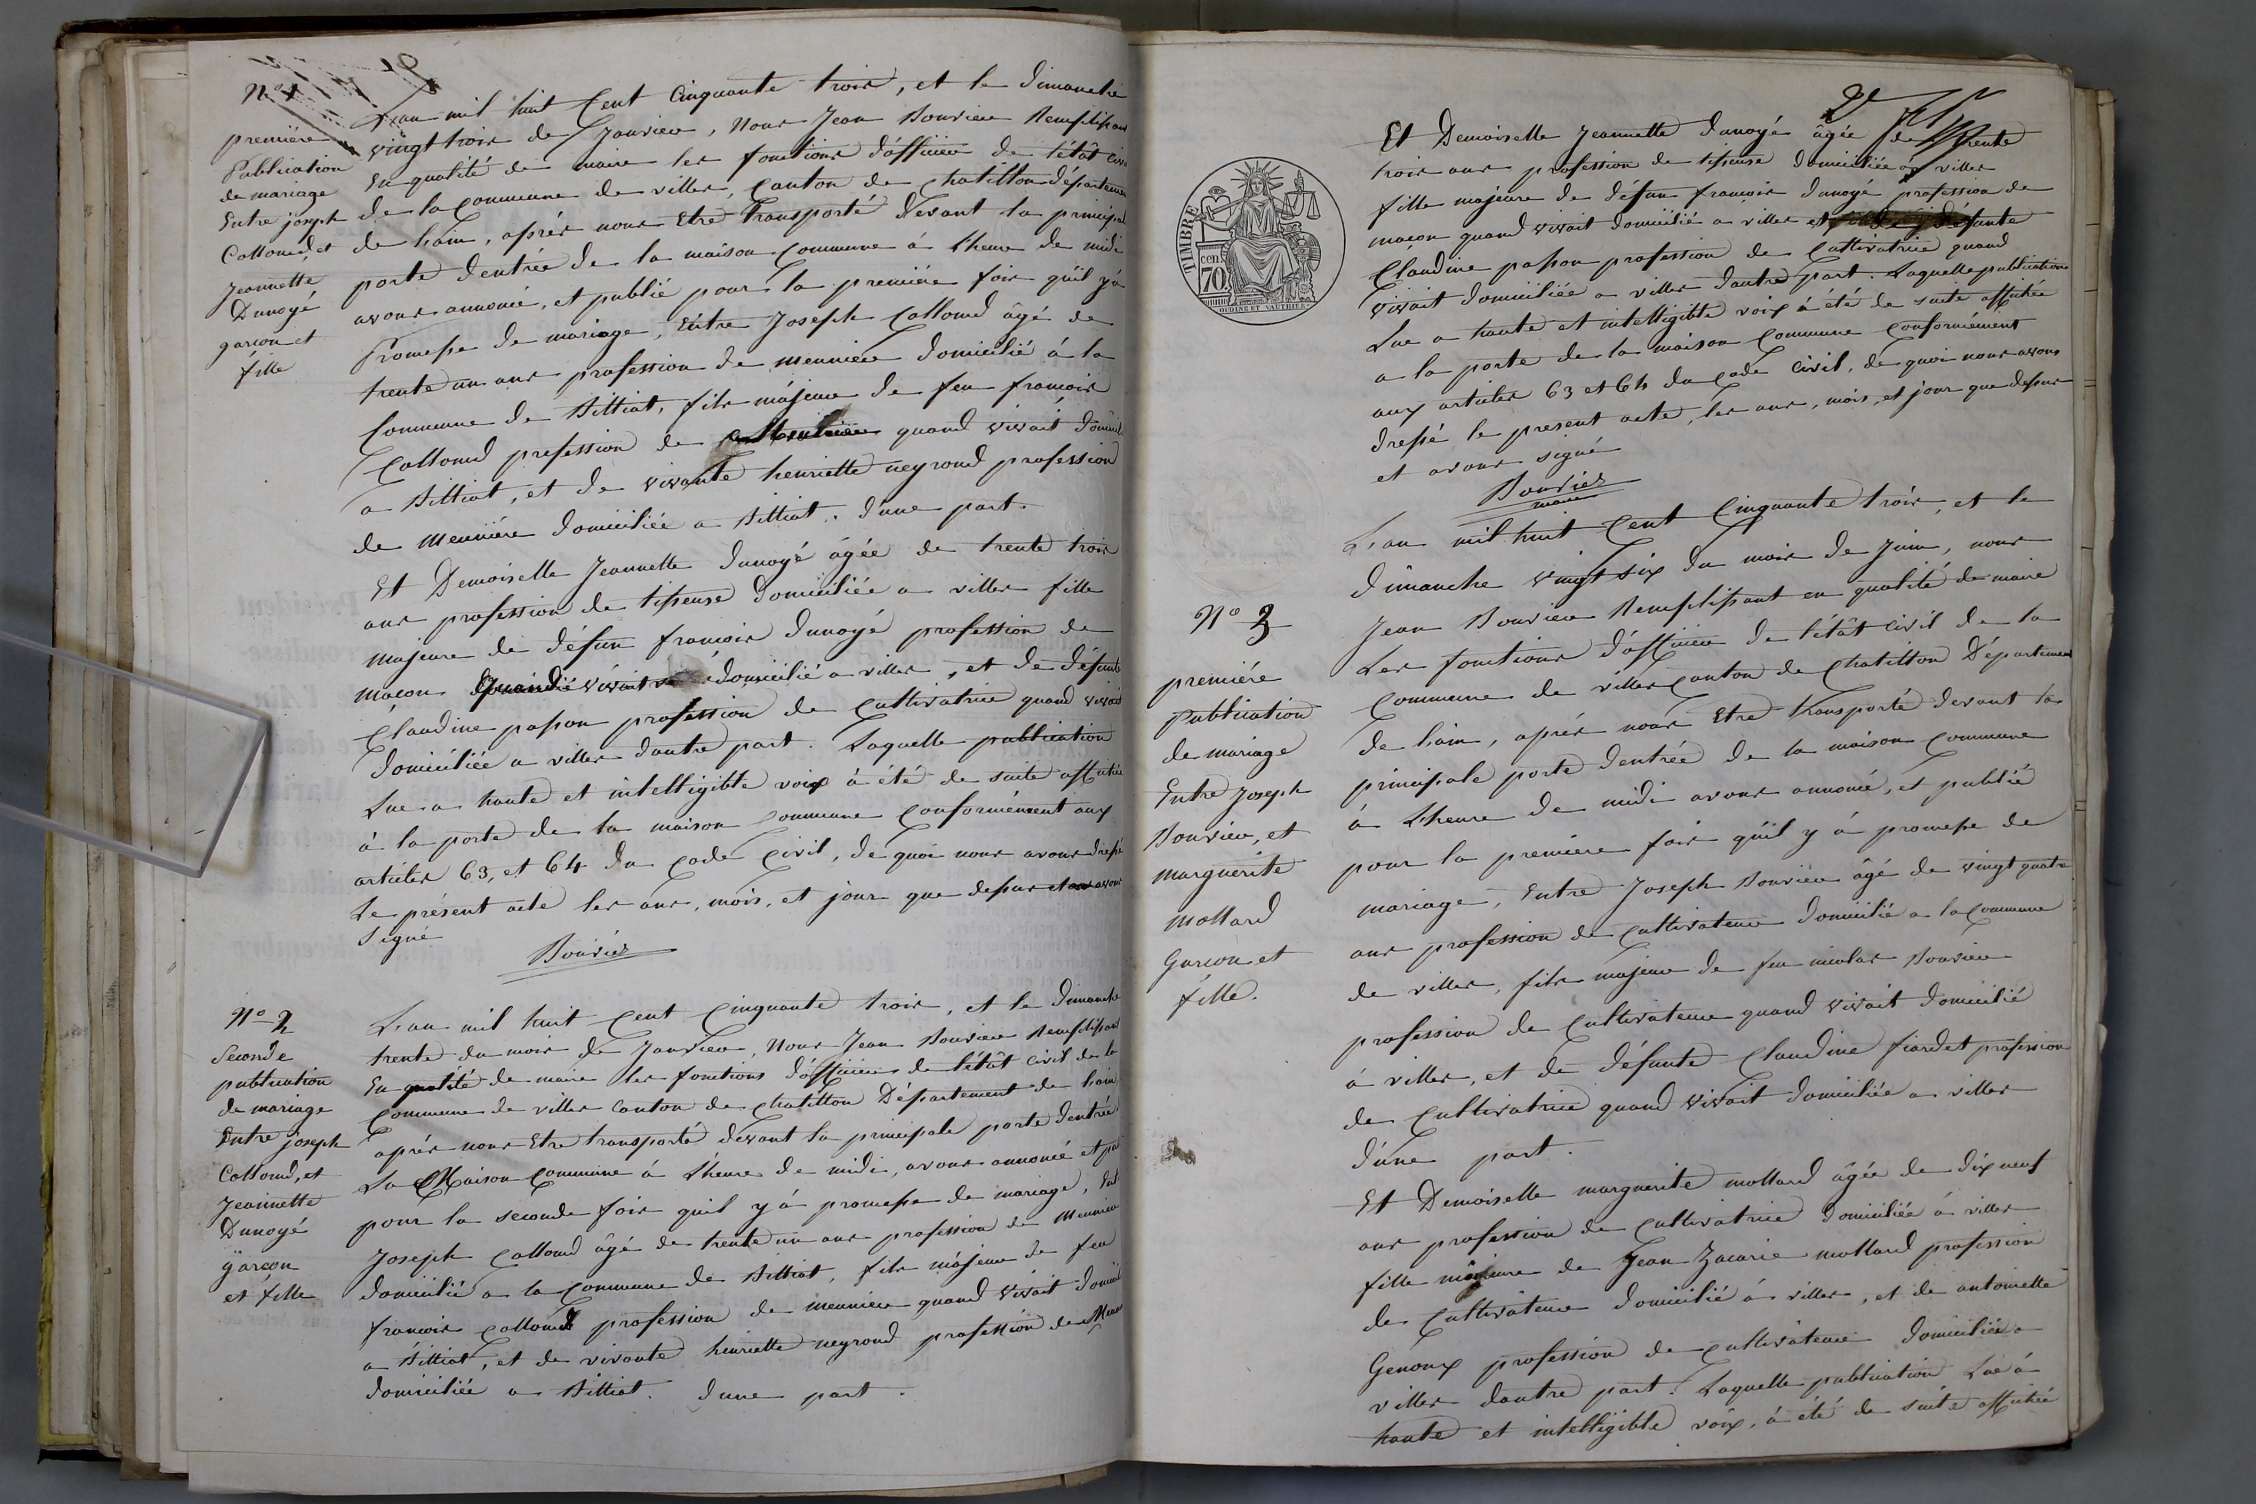 N° 1
première
Publication
de mariage
Entre joseph
Collomd, et
Jeannette
Dunoyé
garcon et
fille
L'an mil huit Cent Cinquante trois, et le dimanche
vingt trois de Janvier, Nous Jean Bouvier Remplissant
En qualité de maire les fonctions d'officier de l'étât civil
de la Commune de villes, Canton de Chatillon département
de Lain, aprés nous Etre transporté devant la principale
porte dentrée de la maison Commune á Lheure de midi
avons annoncé, et publié pour la première fois quil yá
Promesse de mariage, Entre Joseph Collomd âgé de
trente un ans profession de meunier domicilié á la
Commune de Billiat, fils májeur de feu françois
Collomd profession de quand vivait domicilié
a Billiat, et de vivante henriette neyroud profession
de meunière domiciliée a Billiat. dune part.
Et Demoiselle Jeannette dunoyé âgée de trente trois
ans profession de tisseuse domiciliée a villes fille
majeure de défun françois dunoyé profession de
maçon quand vivait domicilié a villes, et de défunte
Claudine passon profession de Cultivatrice quand vivait
domiciliée a villes dautre part. Laquelle publication
Lue a haute et intelligible voix á été de suite affichée
á la porte de la maison Commune Conformément aux
articles 63, et 64 du Code Civil, de quoi nous avons dressé
Le présent acte les ans, mois, et jour que dessus et avons
signé
Bouvier
N° 2
Seconde
publication
de mariage
Entre joseph
Collomd, et
Jeannette
Dunoyé
garcon
et fille
L'an mil huit Cent Cinquante trois, et le dimanche
trente du mois de Janvier, Nous Jean Bouvier Remplissant
En qualité de maire les fonctions d'officier de l'étât Civil de la
Commune de villes Canton de Chatillon Département de Lain
aprés nous Etre transporté devant la principale porte dentrée
La Maison Commune á Lheure de midi, avons annoncé et pu
pour la seconde fois quil yá promesse de mariage, Ent
Joseph Collomd âgé de trente un ans profession de meunier
domicilié a la Commune de Billiat, fils májeur de feu
françois Collomd profession de meunier quand vivait domicil
a Billiat, et de vivante henriette neyroud profession de Meun
domiciliée a Billiat. dune part.
2
TIMBRE
70 cen
OUDINÉ ET VAUTHIER
Et Demoiselle Jeannette dunoyé âgée de trente
trois ans profession de tisseuse domiciliée á villes
fille majeure de défun françois dunoyé profession de
maçon quand vivait domicilié a villes et défunte
Claudine passon profession de Cultivatrice quand
vivait domiciliée a villes dautre part. Laquelle publication
Lue a haute et intelligible voix á été de suite affichée
a la porte de la maison Commune Conformément
aux articles 63 et 64 du Code Civil, de quoi nous avons
dressé le present acte, les ans, mois, et jour que dessus
et avons signé
Bouvier
maire
N° 3
première
publication
de mariage
Entre Joseph
Bouvier, et
marguerite
mollard
Garcon et
fille.
L'an mil huit Cent Cinquante trois, et le
dimanche vingt six du mois de Juin, nous
Jean Bouvier Remplissant en qualité de maire
Les fonctions d'officier de l'étât civil de la
Commune de villes Canton de Chatillon Département
de Lain, aprés nous Etre transporté devant la
principale porte dentrée de la maison Commune
á Lheure de midi avons annoncé, et publié
pour la première fois quil y á promesse de
mariage, Entre Joseph Bouvier âgé de vingt quatre
ans profession de Cultivateur domicilié a la Commune
de villes, fils majeur de feu nicolas Bouvier
profession de Cultivateur quand vivait domicilié
á villes, et de défunte Claudine fiardet profession
de Cultivatrice quand vivait domiciliée a villes
d'une part.
Et Demoiselle marguerite mollard âgée de dix neuf
ans profession de Cultivatrice domiciliée á villes
fille mineure de Jean Zacarie mollard profession
de Cultivateur domicilié á villes, et de antoinette
Genoux profession de cultivateur domiciliée a
villes dautre part. Laquelle publication Lue á
haute et intelligible voix, á été de suite affichée